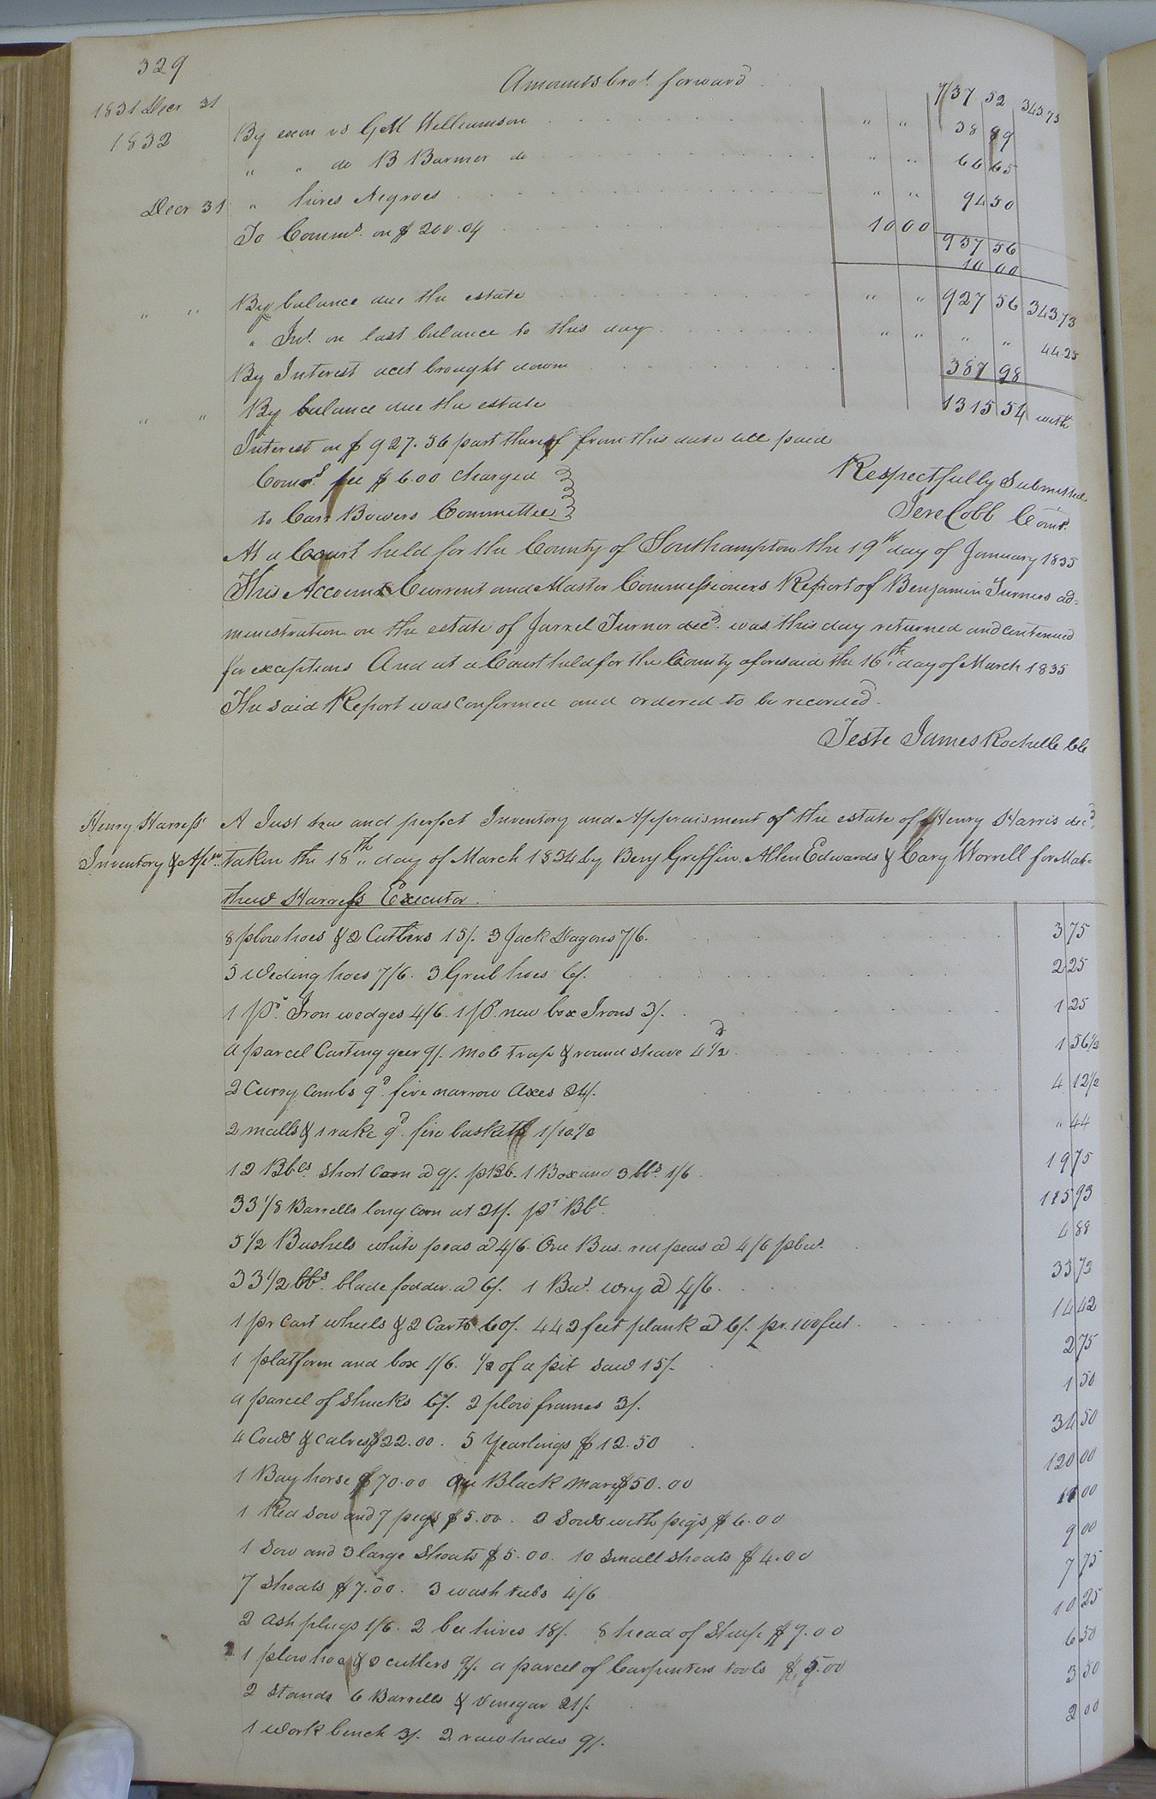 329
Amounts brot. forward 737 52 343.73
1831 Decr 31
1832 By exon vs G M Williamson " " 38 89
" " do B Barmer do " " 66 65
Decr 31 " hires Negroes " " 94 50
To Comms. on $ 200.04 10 00 937 56
10 00
" " By balance due the estate " " 927 56 343.73
" Int. on last balance to this day " " " " 44.25
By Interest acct brought down 387 98
" " By balance due the estate 1315 54 with
Interest on $ 927.56 part thereof from this date till paid
Comrs. fee $ 6.00 charged
to Carr Bowers Committee
Respectfully Submitted
Jere Cobb Comr.
At a Court held for the County of Southampton the 19th day of January 1835
This Account Current and Master Commissioners Report of Benjamin Turners ad=
ministration on the estate of Jarrel Turner decd. was this day returned and continued
for exceptions And at a Court held for the County aforesaid the 16th. day of March 1835
The said Report was confirmed and ordered to be recorded.
Teste James Rochelle Clk
Henry Harress A Just true and perfect Inventory and Appraisment of the estate of Henry Harris decd.
Inventory & Apt. taken the 18th day of March 1834 by Benj Griffin. Allen Edwards & Cary Worrell for Mat=
thew Harress Executor.
8 plow hoes & 2 Cutters 15/. 3 Jack Wagons 7/6. 3 75
5 Weding hoes 7/6. 3 Grub hoes 6/. 2 25
1 pr. Iron wedges 4/6. 1 pr. new box Irons 3/. 1 25
a parcel Carting geer 9/. Mole trap & round shave 4½d 1 56½
2 Curry Combs 9d. five narrow axes 24/. 4 12½
2 malls & 1 rake 9d. five baskets 1/10½ " 44
12 Bbls. short Corn @ 9/. p Bb. 1 Box and 3 bbs 1/6 19 75
33 1/8 Barrells long Corn at 21/. pr Bbl. 115 93
5 1/2 Bushels white peas @ 4/6. One Bus. red peas @ 4/6 p bus. 4 88
33 1/2 bbs. blade fodder @ 6/. 1 Bus. wry @ 4/6. 33 73
1 pr Cart wheels & 2 Carts 60/. 442 feet plank @ 6/. pr. 100 feet 14 42
1 platform and box 1/6. 1/2 of a pit saw 15/. 2 75
a parcel of Shucks 6/. 2 plow frames 3/. 1 50
4 Cows & Calves $22.00. 5 Yearlings $ 12.50 34 50
1 Bay horse $ 70.00 One Black Mare $50.00 120 00
1 Red Sow and 7 pigs $ 5.00. 2 Sows with pigs $ 6.00 11 00
1 Sow and 3 large Shoats $ 5.00. 10 Small Shoats $ 4.00 9 00
7 Shoats $ 7.00. 3 wash tubs 4/6 7 75
2 ash plugs 1/6. 2 bee hives 18/. 8 head of Sheep $ 7.00 10 25
1 plow hoe & 2 cutters 9/. a parcel of Carpenters tools $ 5.00 6 50
2 Stands 6 Barrells & Vinegar 21/. 3 50
1 work bench 3/. 2 raw hides 9/. 2 00